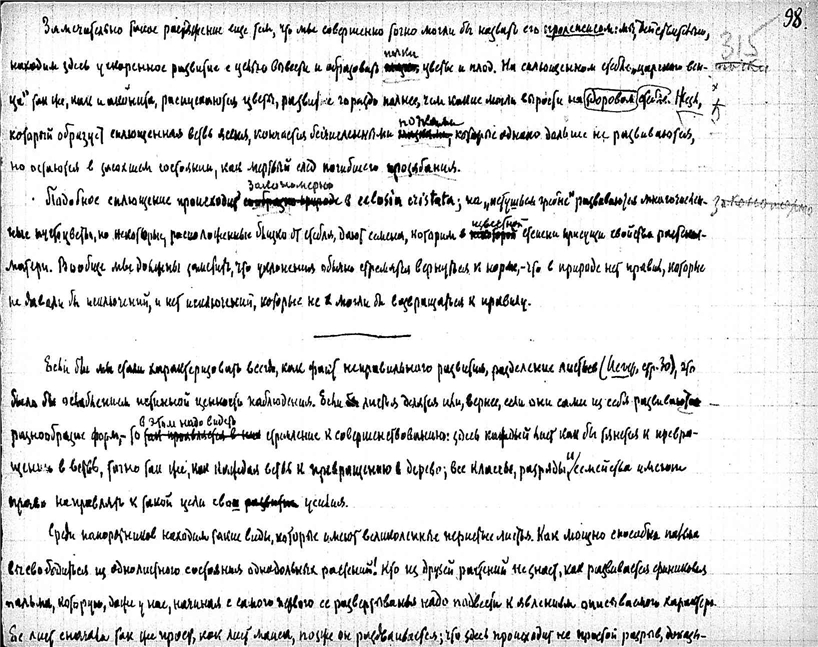 98.
315
Замечательно такое растяжение еще тем, что мы совершенно точно могли бы назвать его пролепсисом: мы, действительно,
почки
находим здесь ускоренное развитие с целью вывести и образовать цветы и плод. На сплющенном стебле „царского вен-
ца" так же, как и аконита, распускаются цветы, развитые гораздо полнее, чем какие могли вырости на здоровом стебле. Жезл,
почками
который образует сплющенная ветвь ясеня, кончается бесчисленными которые однако дальше не развиваются,
но остаются в засохшем состоянии, как мертвый след погибшего прозябания.
Закономерно
Подобное сплющение происходит в celosia cristata; на „петушьем гребне" развиваются многочислен-
закономерно
ные пустоцветы, но некоторые, расположенные близко от стебля, дают семена, которым в
известной
степени присущи свойства растения-
матери. Вообще мы должны заметить, что уклонения обычно стремятся вернуться к норме, – что в природе нет правил, которые
не давали бы исключений, и нет исключений, которые не могли бы возвращаться к правилу.
Если бы мы стали характеризовать всегда, как факт неправильного развития, разделение листьев (стр. 30), это
было бы ослаблением истинной ценности наблюдения. Если листья делятся или, вернее, если они сами из себя развивают
в этом надо видеть
разнообразие форм, – то стремление к совершенствованию: здесь каждый лист как бы тянется к превра-
щению в ветвь, точно так же, как каждая ветвь к превращению в дерево; все классы, разряды и семейства имеют
право направлять к такой цели свои усилия.
Среди папоротников находим такие виды, которые имеют великолепные перистые листья. Как мощно способна пальма
высвободиться из однолистного состояния однодольных растений! Кто из друзей растений не знает, как развивается финиковая
пальма, которую, даже у нас, начиная с самого первого ее развертыванья надо подвести к явлениям описываемого характера.
Ее лист сначала так же прост, как лист маиса, позже он раздваивается; что здесь происходит не простой разрыв, доказы-